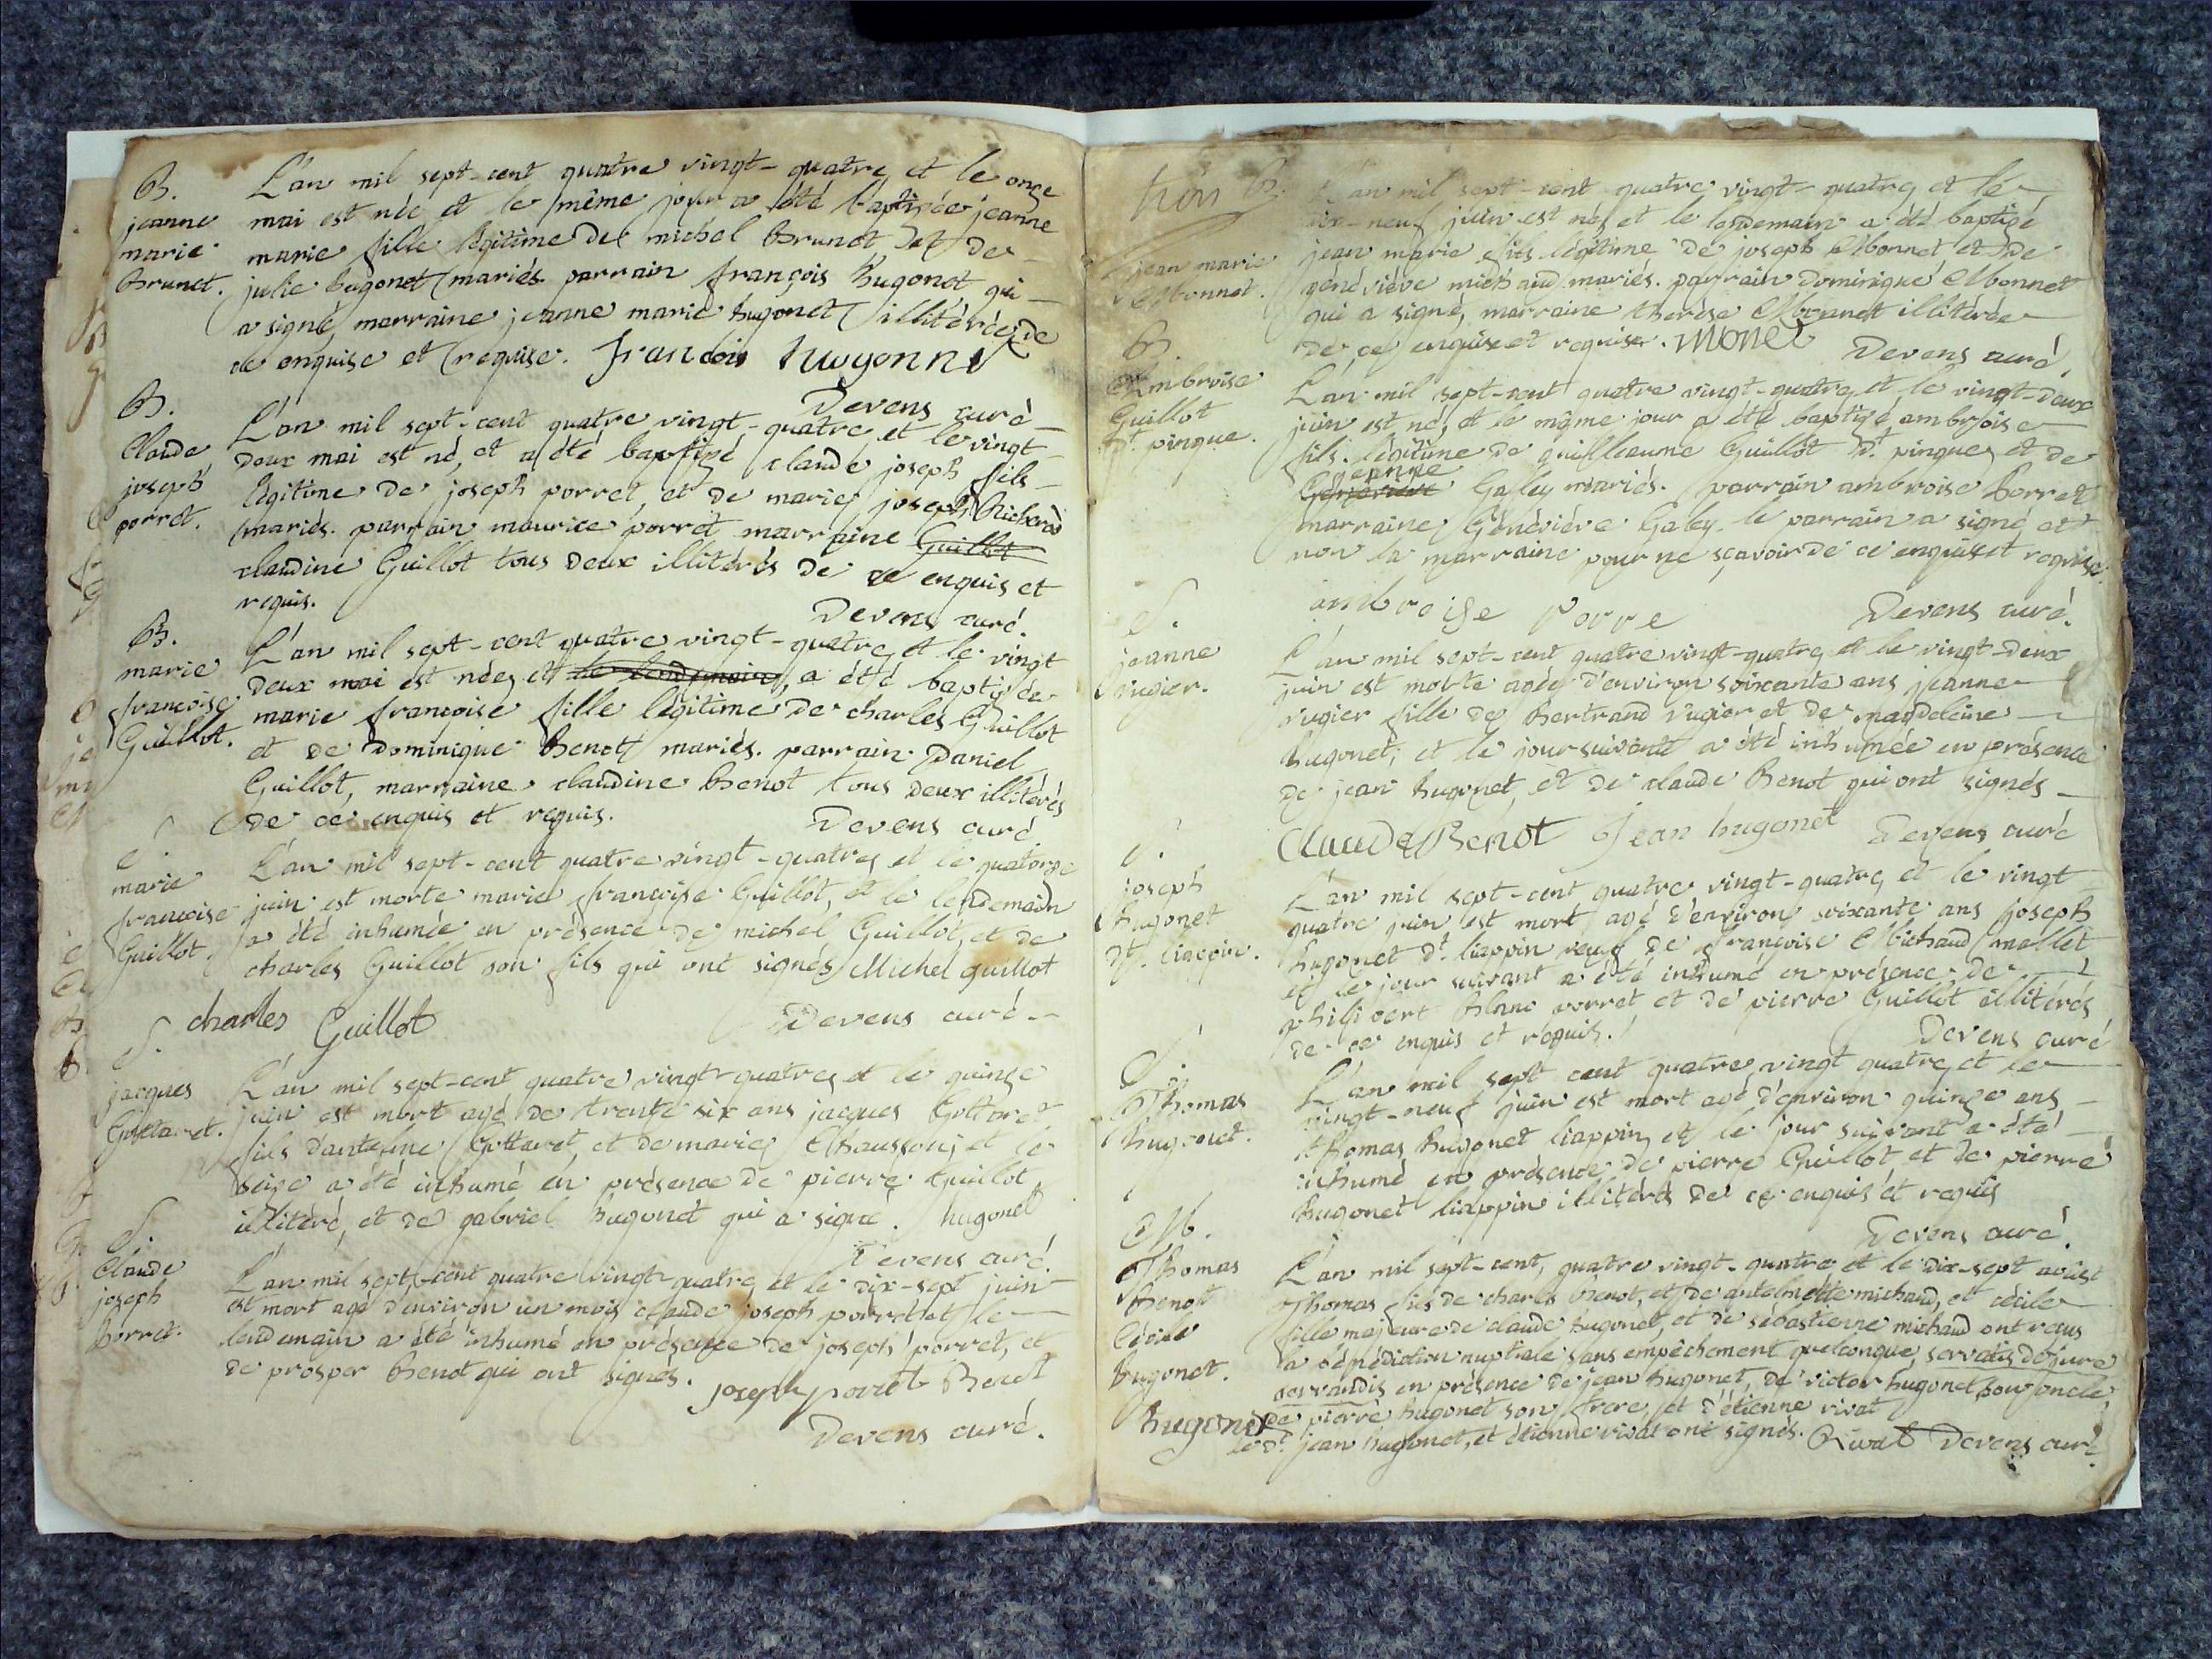 B.
jeanne
marie
Brunet.
L'an mil sept-cent quatre vingt-quatre, et le onze
mai est née, et le même jour a été baptizée jeanne
marie fille légitime de michel Brunet et de
julie hugonet mariés. parrain françois hugonet qui
a signé, marraine jeanne marie hugonet illitérée de
ce enquise et requise. francois hugonnet
Devens curé
B.
Claude
joseph
porret.
L'an mil sept-cent quatre vingt-quatre et le vingt
deux mai est né, et a été baptizé claude joseph fils
légitime de joseph porret, et de marie joseph Richard
mariés. parrain maurice porret marraine Guillot
claudine Guillot tous deux illitérés de ce enquis et
requis.
Devens curé.
B.
marie
françoise
Guillot.
L'an mil sept-cent quatre vingt-quatre, et le vingt
deux mai est née, et le lendemain, a été baptizée
marie françoise fille légitime de charles Guillot
et de Dominique Benot mariés. parrain Daniel
Guillot, marraine claudine Benot tous deux illitérés
de ce enquis et requis.
Devens curé
S.
marie
françoise
Guillot.
L'an mil sept-cent quatre vingt-quatre, et le quatorze
juin est morte marie françoise Guillot, et le lendemain
a été inhumée en présence de michel Guillot, et de
charles Guillot son fils qui ont signés Michel guillot
charles Guillot
Devens curé
S.
jacques
Gottaret.
L'an mil sept-cent quatre vingt-quatre, et le quinze
juin est mort agé de trente six ans jacques Gottaret
fils d'antelme Gottaret, et de marie Chausson; et le
seize a été inhumé en présence de pierre Guillot
illitéré, et de gabriel hugonet qui a signé. hugonet
Devens curé.
S.
Claude
joseph
porret.
L'an mil sept-cent quatre vingt-quatre, et le dix-sept juin
est mort agé d'environ un mois claude joseph porret et le
lendemain a été inhumé en présence de joseph porret, et
de prosper Benot qui ont signés.
joseph porret Benot
Devens curé.
B.
jean marie
Monnet.
L'an mil sept-cent quatre vingt-quatre, et le
dix-neuf juin est né, et le lendemain a été baptizé
jean marie fils légitime de joseph Monnet et de
généviéve michaud mariés. parrain Dominique Monnet
qui a signé, marraine therése Monnet illitérée
de ce enquise et requise. monet
Devens curé.
B.
Ambroise
Guillot
dt. pingue.
L'an mil sept-cent quatre vingt-quatre, et le vingt-deux
juin est né, et le même jour a été baptizé ambroise
fils légitime de guilleaume Guillot dt. pingue, et de
jeanne
Généviéve Galey mariés. parrain ambroise Porret
marraine Généviéve Galey. le parrain a signé, et
non la marraine pour ne sçavoir de ce enquise et requise.
ambroise porre
Devens curé.
S.
jeanne
vugier.
L'an mil sept-cent quatre vingt-quatre, et le vingt-deux
juin est morte agée d'environ soixante ans jeanne
vugier fille de Bertrand vugier et de magdeleine
hugonet; et le jour suivant a été inhumée en présence
de jean hugonet, et de claude Benot qui ont signés
Claude Benot jean hugonet Devens curé
S.
joseph
hugonet
dt. liappin.
L'an mil sept-cent quatre vingt-quatre, et le vingt
quatre juin est mort agé d'environ soixante ans joseph
hugonet dt. liappin veuf de françoise Michaud mollet
et le jour suivant a été inhumé en présence de
philibert Blanc porret et de pierre Guillot illitérés
de ce enquis et requis.
Devens curé
S.
Thomas
hugonet.
L'an mil sept cent quatre vingt quatre, et le
vingt-neuf juin est mort agé d'environ quinze ans
thomas hugonet liappin, et le jour suivant a été
inhumé en présence de pierre Guillot, et de pierre
hugonet liappin illitérés de ce enquis et requis
Devens curé.
M.
Thomas
Benot
Cécile
hugonet.
L'an mil sept-cent, quatre vingt-quatre et le dix-sept août
Thomas fils de charles Benot, et de antelmette michaud, et cécile
fille majeure de claude hugonet, et de sébastienne michaud ont reçus
la bénédiction nuptiale sans empêchement quelconque, servatis de jure
servandis en présence de jean hugonet, de victor hugonet son oncle,
de pierre hugonet son frere, et d'étienne rivat
le dt. jean hugonet, et étienne rivat ont signés. Rivat Devens curé.
hugonet